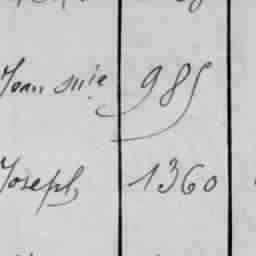 Jean Mie 985
Joseph 1360